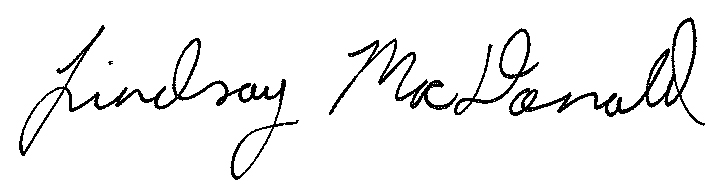 Lindsay MacDonald